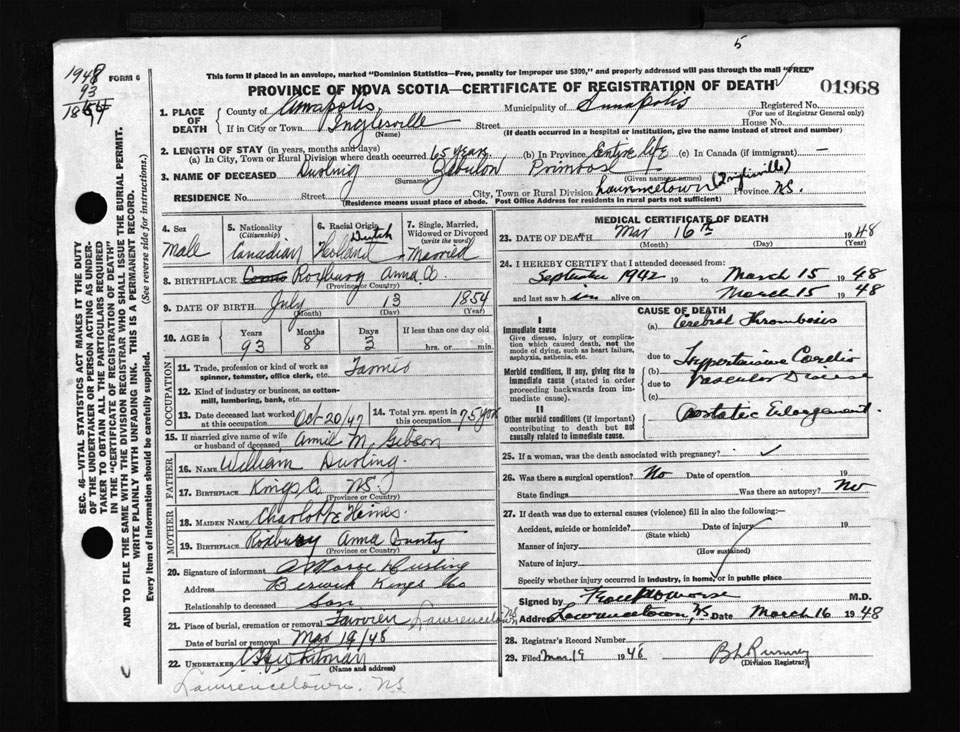 5
1948
93
1854
FORM 6
This form if placed in an envelope, marked "Dominion Statistics—Free, penalty for improper use $300," and properly addressed will pass through the mail "FREE"
PROVINCE OF NOVA SCOTIA—CERTIFICATE OF REGISTRATION OF DEATH
01968
1. PLACE OF DEATH
County of Annapolis Municipality of Annapolis Registered No.
(For use of Registrar General only)
If in City or Town Inglesville Street House No.
(Name) (If death occurred in a hospital or institution, give the name instead of street and number)
2. LENGTH OF STAY (in years, months and days)
(a) In City, Town or Rural Division where death occurred 65 years (b) In Province Entire life (c) In Canada (if immigrant) —
3. NAME OF DECEASED Durling Zebulon Primrose
(Surname) (Given name or names)
RESIDENCE No. Street City, Town or Rural Division Lawrencetown (Inglisville) Province N.S.
(Residence means usual place of abode. Post Office Address for residents in rural parts not sufficient)
4. Sex Male
5. Nationality (Citizenship) Canadian
6. Racial Origin Dutch
7. Single, Married, Widowed or Divorced (write the word) Married
8. BIRTHPLACE Roxbury Anna Co.
(Province or Country)
9. DATE OF BIRTH July 13 1854
(Month) (Day) (Year)
10. AGE in Years 93 Months 8 Days 3 If less than one day old hrs. or min.
OCCUPATION
11. Trade, profession or kind of work as spinner, teamster, office clerk, etc.
12. Kind of industry or business, as cotton-mill, lumbering, bank, etc.
13. Date deceased last worked at this occupation Oct 20/47
14. Total yrs. spent in this occupation 75 yrs
15. If married give name of wife or husband of deceased M. Gibson
FATHER
16. NAME William Durling
17. BIRTHPLACE Kings Co. N.S.
(Province or Country)
MOTHER
18. MAIDEN NAME Charlotte Heines
19. BIRTHPLACE Roxbury Anna County
(Province or Country)
20. Signature of informant Durling
Address Berwick Kings Co
Relationship to deceased Son
21. Place of burial, cremation or removal Lawrencetown NS
Date of burial or removal Mar 19/48
22. UNDERTAKER Whitman
(Name and address)
Lawrencetown, N.S.
MEDICAL CERTIFICATE OF DEATH
23. DATE OF DEATH Mar 16th 1948
(Month) (Day) (Year)
24. I HEREBY CERTIFY that I attended deceased from:
September 1942 19 to March 15 1948
and last saw him alive on March 15 1948
CAUSE OF DEATH
I
Immediate cause
Give disease, injury or complication which caused death, not the mode of dying, such as heart failure, asphyxia, asthenia, etc.
(a) Cerebral Thrombosis
due to
Morbid conditions, if any, giving rise to immediate cause (stated in order proceeding backwards from immediate cause).
(b) Hypertensive Cardio
due to Vascular Disease
(c)
II
Other morbid conditions (if important) contributing to death but not causally related to immediate cause.
Prostatic Enlargement.
25. If a woman, was the death associated with pregnancy?
26. Was there a surgical operation? No Date of operation 19
State findings Was there an autopsy? No
27. If death was due to external causes (violence) fill in also the following:—
Accident, suicide or homicide? Date of injury 19
(State which)
Manner of injury
(How sustained)
Nature of injury
Specify whether injury occurred in industry, in home, or in public place
Signed by M.D.
Address Lawrencetown, NS Date March 16 1948
28. Registrar's Record Number
29. Filed Mar. 19 1948
(Division Registrar)
SEC. 46—VITAL STATISTICS ACT MAKES IT THE DUTY OF THE UNDERTAKER OR PERSON ACTING AS UNDERTAKER TO OBTAIN ALL THE PARTICULARS REQUIRED IN THE "CERTIFICATE OF REGISTRATION OF DEATH" AND TO FILE THE SAME WITH THE DIVISION REGISTRAR WHO SHALL ISSUE THE BURIAL PERMIT.
WRITE PLAINLY WITH UNFADING INK. THIS IS A PERMANENT RECORD.
Every item of information should be carefully supplied. (See reverse side for instructions.)